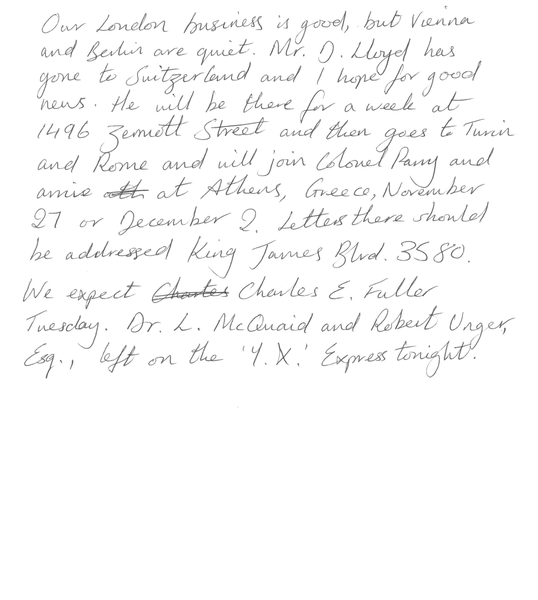 Our London business is good, but Vienna
and Berlin are quiet. Mr. D. Lloyd has
gone to Switzerland and I hope for good
news. He will be there for a week at
1496 Zermott Street and then goes to Turin
and Rome and will join Colonel Parry and
arrive at Athens, Greece, November
27 or December 2. Letters there should
be addressed King James Blvd. 3580.
We expect Charles E. Fuller
Tuesday. Dr. L. McQuaid and Robert Unger,
Esq., left on the 'Y. X.' Express tonight.